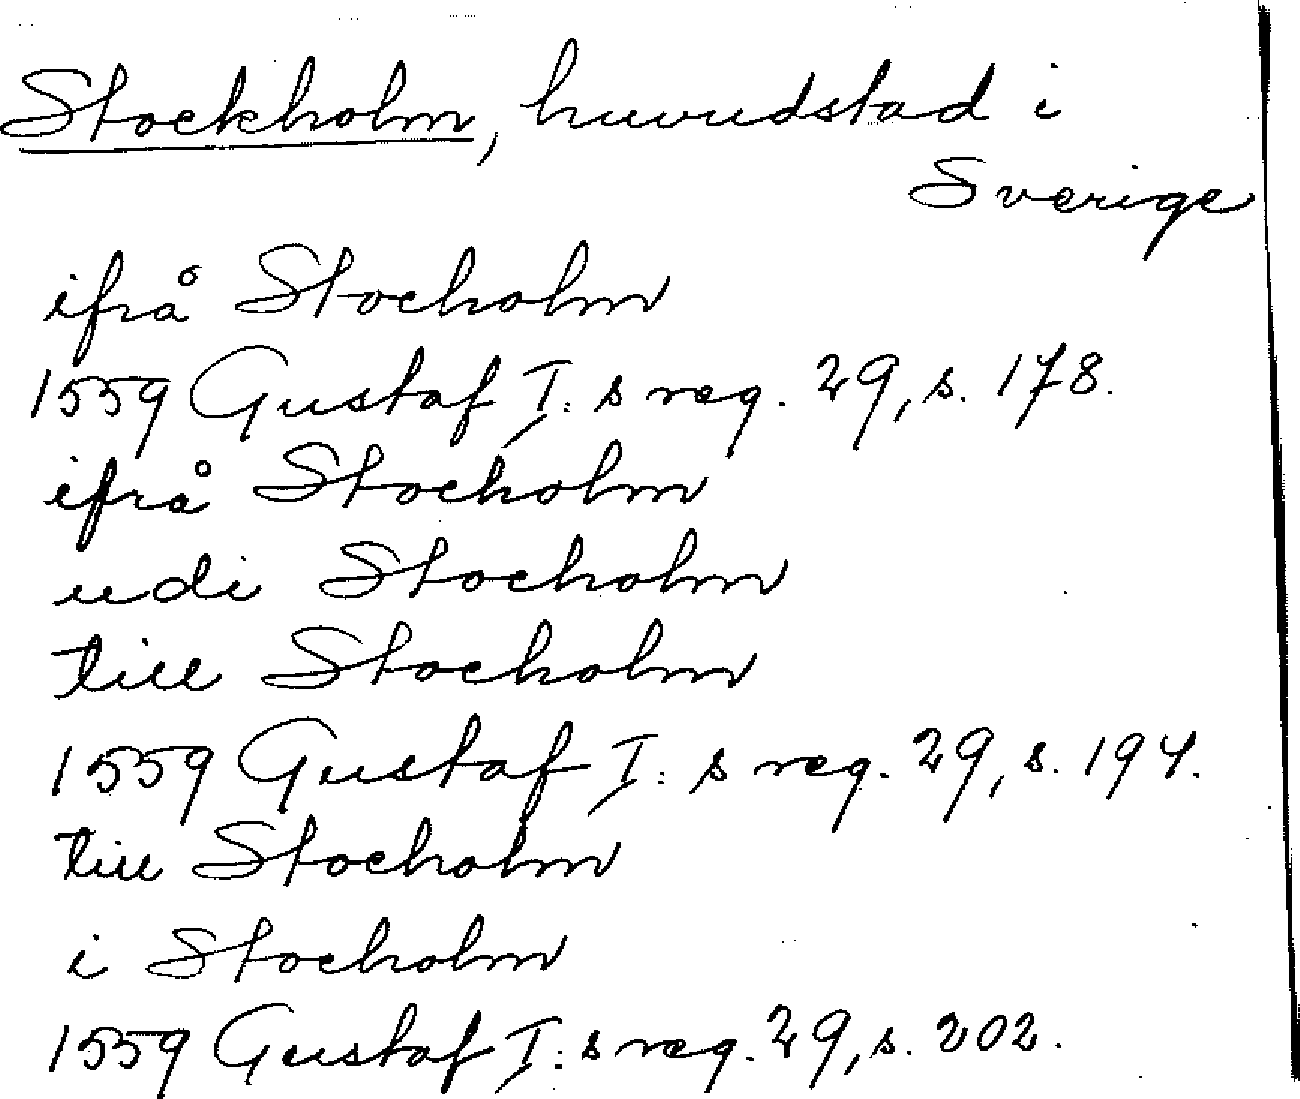 Stockholm, huvudstad i
Sverige
ifrå Stocholm
1559 Gustaf I:s reg. 29, s. 178.
ifrå Stocholm
udi Stocholm
till Stocholm
1559 Gustaf I:s reg. 29, s. 194.
till Stocholm
i Stocholm
1559 Gustaf I:s reg. 29, s. 202.